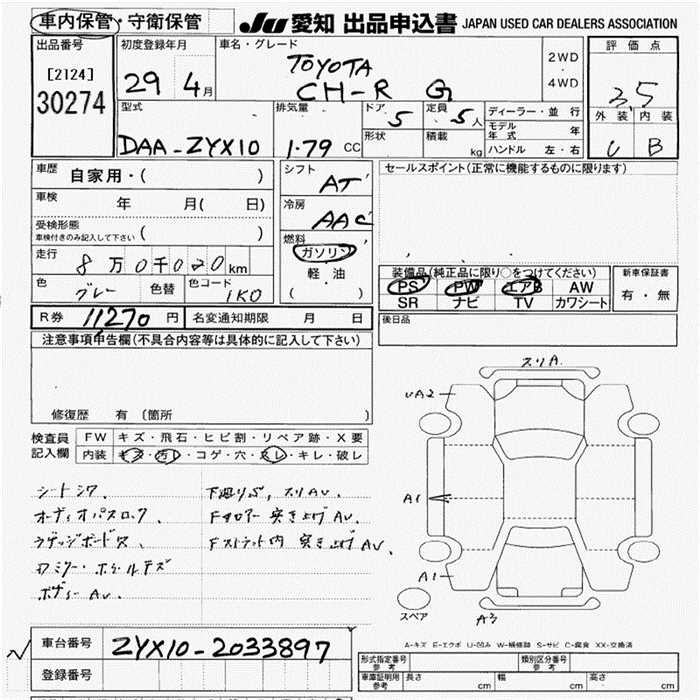 車内保管・守衛保管 JU 愛知 出品申込書 JAPAN USED CAR DEALERS ASSOCIATION
出品番号
[2124]
30274
初度登録年月
29 4月
車名・グレード
TOYOTA
CH-R G
2WD
・
4WD
評価点
3.5
外装 内装
B
型式
DAA-ZYX10
排気量
1.79 CC
ドア 5
形状
定員 5人
積載 kg
ディーラー・並行
モデル年式 年
ハンドル 左・右
車歴
自家用・( )
車検 年 月( 日)
受検形態
車検付きのみ記入して下さい ( )
走行
8万0千020km
色 グレー 色替 色コード 1K0
シフト
AT
冷房
AAC
燃料
ガソリン
軽・油
( )
セールスポイント(正常に機能するものに限ります)
装備品(純正品に限り○をつけてください)
PS PW エアB AW
SR ナビ TV カワシート
新車保証書
有・無
R券 11270円 名変通知期限 月 日
後日品
注意事項申告欄(不具合内容等は具体的に記入して下さい)
修復歴 有 (箇所
検査員記入欄
FW キズ・飛石・ヒビ割・リペア跡・X要
内装 キズ・汚レ・コゲ・穴・スレ・キレ・破レ
シートシワ
オーディオパスロック、
ラゲッジボードス、
ワミラー・ホイールキズ
ボディーAU、
下廻りサビ, スリAU、
Fフロアー突き上げAU、
Fストラット内 突き上げAU、
スリA
UA2
A1
A1
A3
スペア
A-キズ E-エクボ U-凹み W-補修跡 S-サビ C-腐食 XX-交換済
車台番号 ZYX10-2033897
登録番号
形式指定番号 参考
類別区分番号 参考
車庫証明用 参考 長さ cm 幅 cm 高さ cm